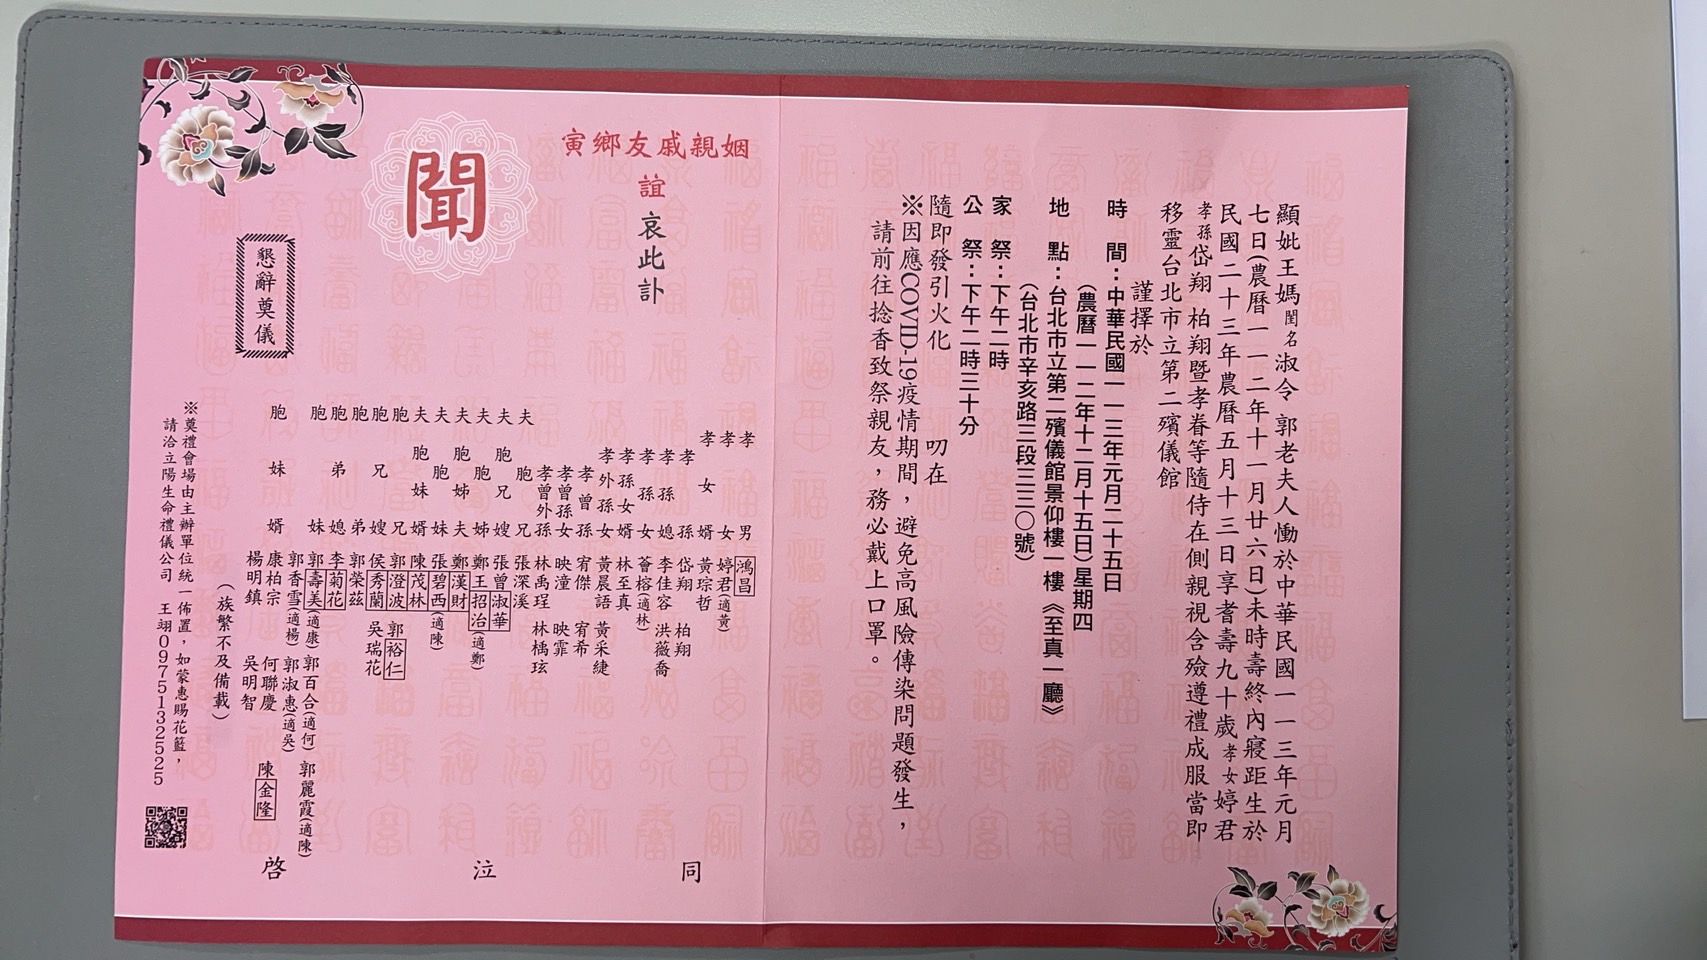 顯妣王媽閨名淑令 郭老夫人慟於中華民國一一三年元月
七日(農曆一一二年十一月廿六日)未時壽終內寢距生於
民國二十三年農曆五月十三日享耆壽九十歲孝女婷君
孝孫岱翔 柏翔暨孝眷等隨侍在側親視含殮遵禮成服當即
移靈台北市立第二殯儀館
謹擇於
時 間：中華民國一一三年元月二十五日
(農曆一一二年十二月十五日)星期四
地 點：台北市立第二殯儀館景仰樓一樓《至真一廳》
(台北市辛亥路三段三三○號)
家 祭：下午二時
公 祭：下午二時三十分
隨即發引火化 叨在
※因應COVID-19疫情期間，避免高風險傳染問題發生，
請前往捻香致祭親友，務必戴上口罩。
姻親戚友鄉寅
誼
哀此訃
聞
懇辭奠儀
孝男 鴻昌
孝女 婷君(適黃)
孝女婿 黃琮哲
孝孫 岱翔 柏翔
孝孫媳 李佳容 洪薇喬
孝孫女 薈榕(適林)
孝孫女婿 林至真
孝外孫女 黃晨語 黃采緁
孝曾孫 宥傑 宥希
孝曾孫女 映潼 映霏
孝曾外孫 林禹珵 林楀玹
胞兄 張深溪
夫胞兄嫂 張曾淑華
夫胞姊 鄭王招治(適鄭)
夫胞姊夫 鄭漢財
夫胞妹 張碧西(適陳)
夫胞妹婿 陳茂林
胞兄 郭澄波 郭裕仁
胞兄嫂 侯秀蘭 吳瑞花
胞弟 郭榮茲
胞弟媳 李菊花
胞妹 郭壽美(適康) 郭百合(適何) 郭麗霞(適陳)
郭香雪(適楊) 郭淑惠(適吳)
胞妹婿 康柏宗 何聯慶 陳金隆
楊明鎮 吳明智
(族繁不及備載)
同 泣 啓
※奠禮會場由主辦單位統一佈置，如蒙惠賜花籃，
請洽立陽生命禮儀公司 王翊0975132525